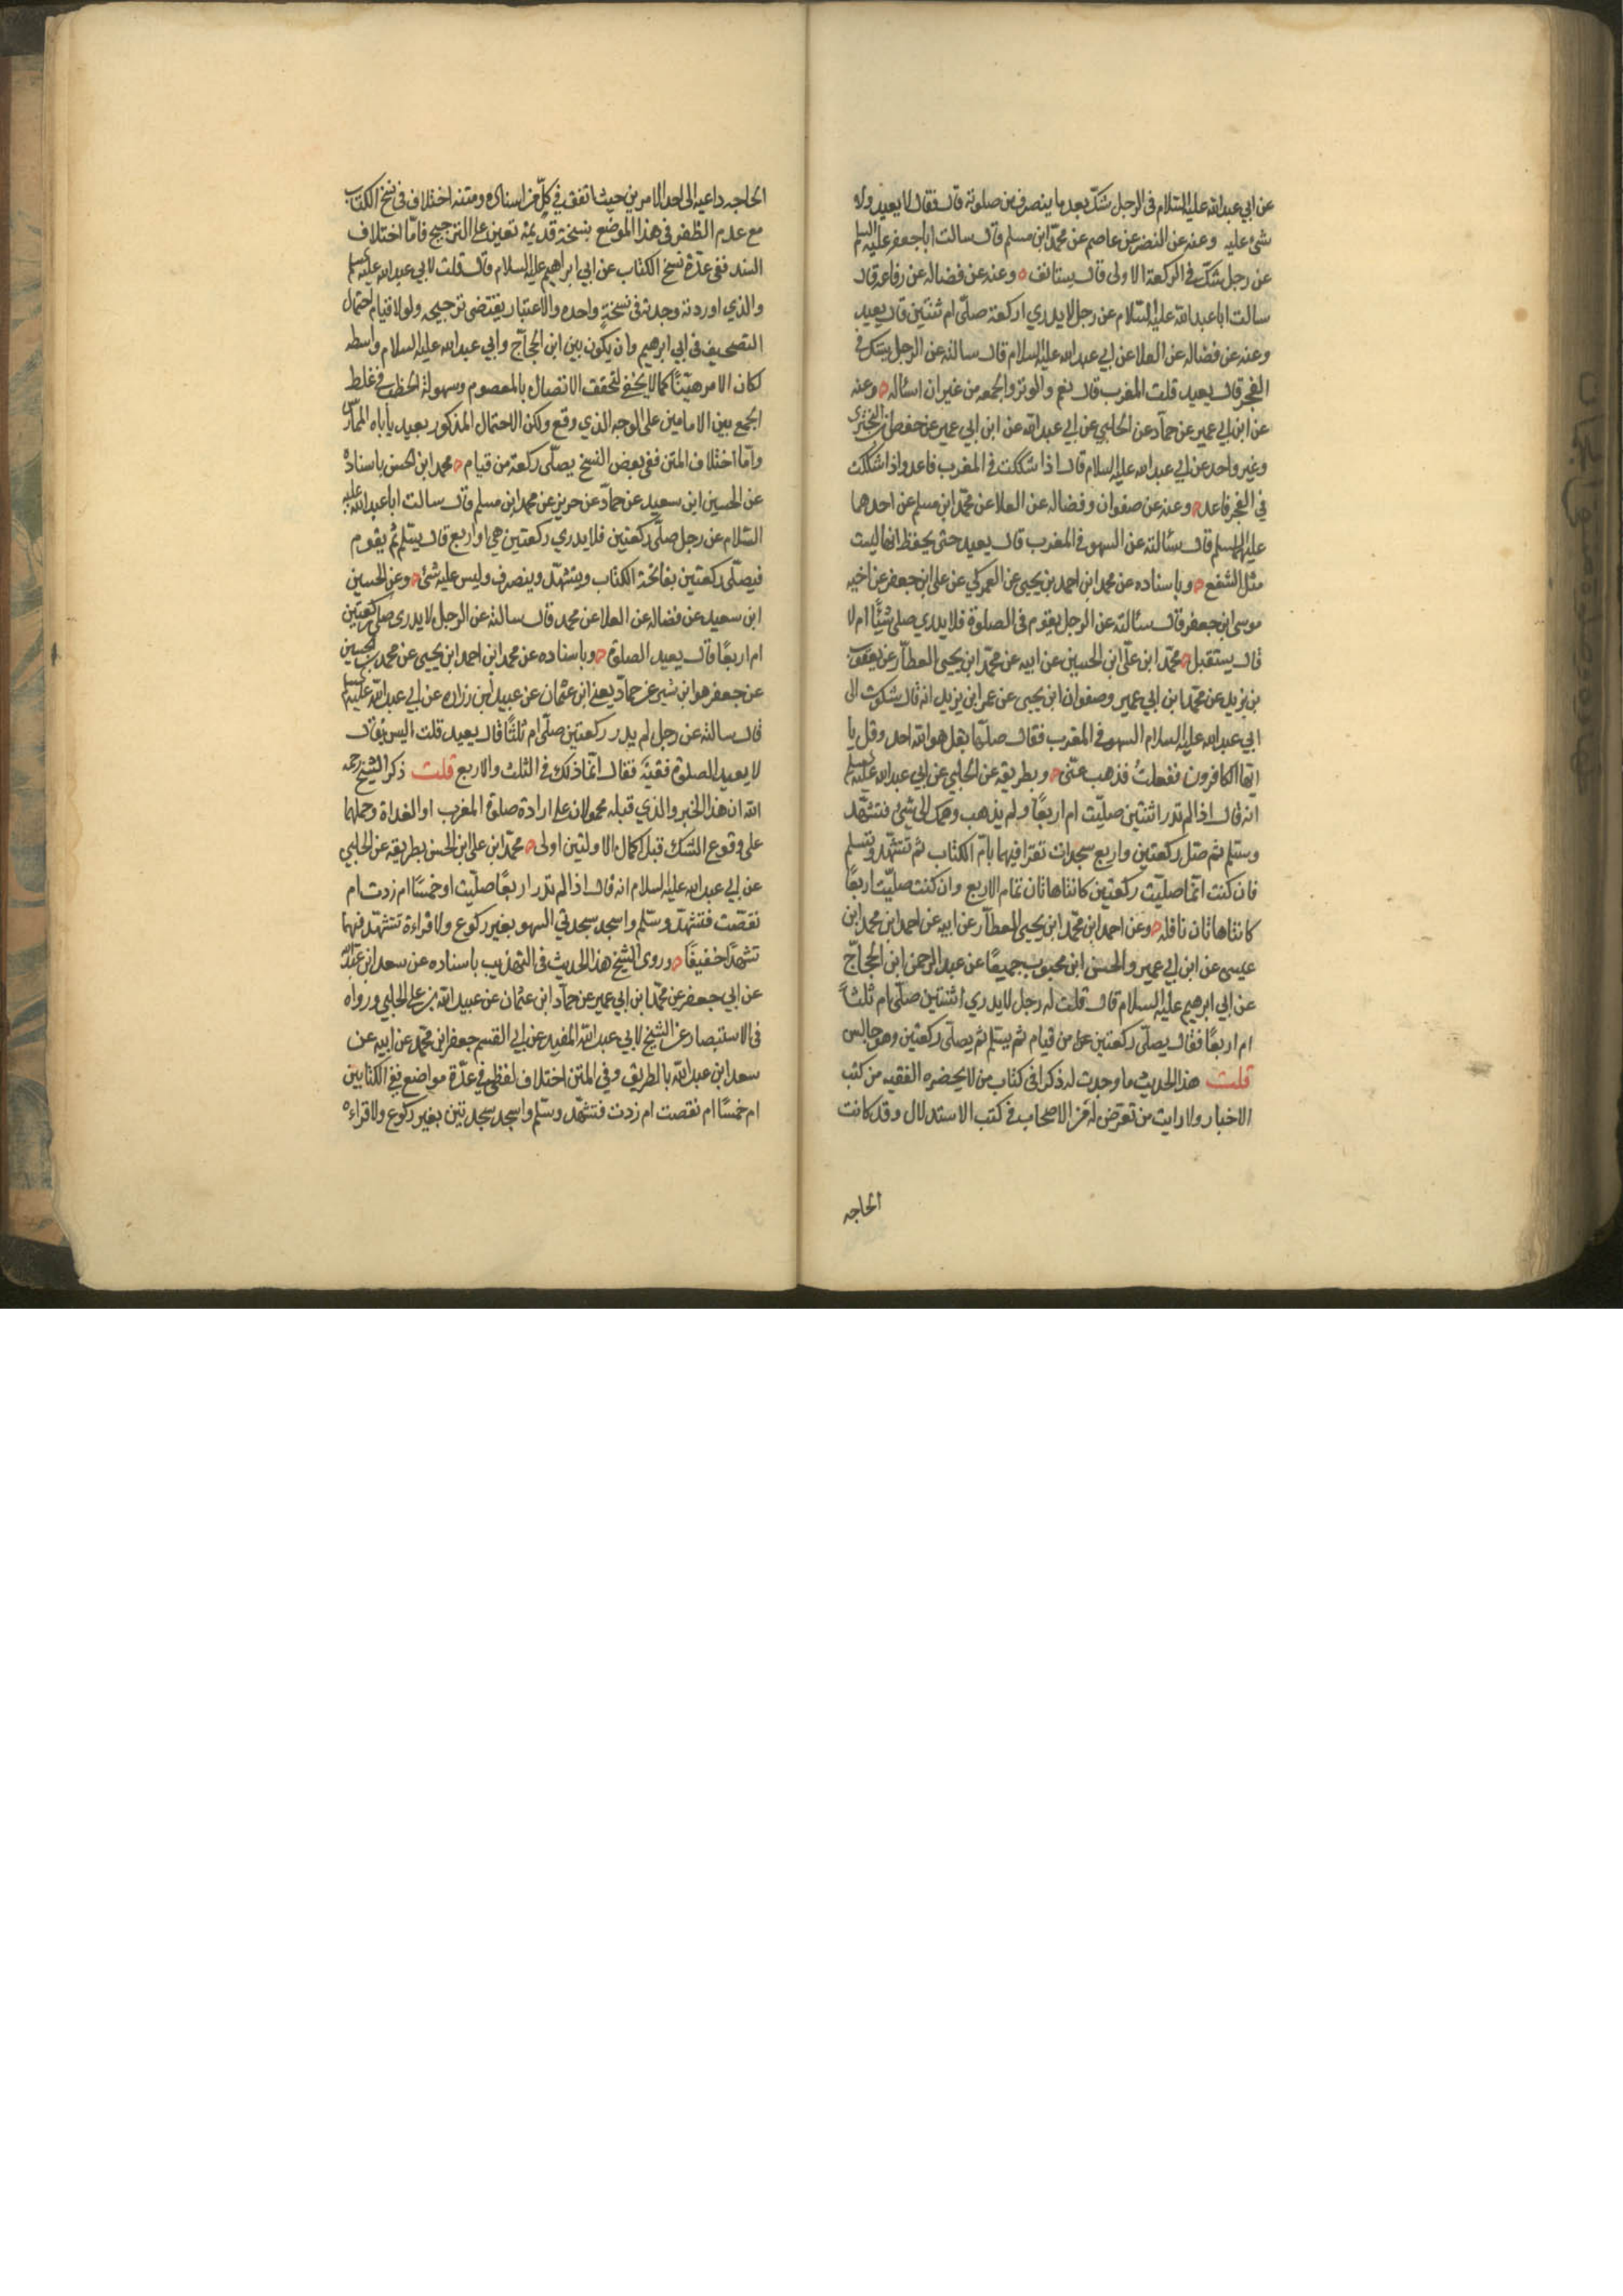 عن ابي عبد الله عليه السلام في الرجل شك بعد ما ينصرف من صلوته قال فقال لا يعيد ولا
شئ عليه وعنه عن النضر عن عاصم عن محمد ابن مسلم قال سالت ابا جعفر عليه السلم
عن رجل شك في الركعة الاولى قال يستانف وعنه عن فضاله عن رفاعه قال
سالت ابا عبد الله عليه السلام عن رجل لا يدري اركعة صلى ام ثنتين قال يعيد
وعنه عن فضاله عن العلا عن ابي عبد الله عليه السلام قال سالته عن الرجل يشك في
الفجر قال يعيد قلت المغرب قال نعم والوتر والجمعه من غير ان اساله وعنه
عن ابن ابي عمير عن حماد عن الحلبي عن ابي عبد الله عن ابن ابي عمير عن حفص ابن البختري
وغير واحد عن ابي عبد الله عليه السلام قال اذا شككت في المغرب فاعد واذا شككت
في الفجر فاعد وعنه عن صفوان وفضاله عن العلا عن محمد ابن مسلم عن احدهما
عليهما السلم قال سئالته عن السهو في المغرب قال يعيد حتى يحفظ انها ليست
مثل الشفع وباسناده عن محمد ابن احمد بن يحيى عن العمركي عن على ابن جعفر عن اخيه
موسى ابن جعفر قال سئالته عن الرجل يقوم في الصلوة فلا يدري صلى شيئًا ام لا
قال يستقبل محمد ابن على ابن الحسين عن ابيه عن محمد ابن يحيى العطار عن يعقوب
بن يزيد عن محمد ابن ابي عمير وصفوان ابن يحيى عن عمر ابن يزيد انه قال شكوت الى
ابي عبد الله عليه السلام السهو في المغرب فقال صلها بقل هو الله احد وقل يا
ايها الكافرون ففعلت فذهب عنى وبطريقه عن الحلبي عن ابي عبد الله عليه السلم
انه قال اذا لم تدر اثنتين صليت ام اربعًا ولم يذهب وهمك الى شئ فتشهد
وسلم ثم صل ركعتين واربع سجدات تقرا فيهما بام الكتاب ثم تتشهد وتسلم
فان كنت انما صليت ركعتين كانتا هاتان تمام الاربع وان كنت صليت اربعًا
كانتا هاتان نافله وعن احمد ابن محمد ابن يحيى العطار عن ابيه عن احمد ابن محمد ابن
عيسى عن ابن ابي عمير والحسن ابن محبوب جميعًا عن عبد الرحمن ابن الحجاج
عن ابي ابرهيم عليه السلام قال قلت له رجل لا يدري اثنتين صلى ام ثلثاً
ام اربعًا فقال يصلى ركعتين من قيام ثم يسلم ثم يصلى ركعتين وهو جالس
قلت هذا الحديث ما وجدت له ذكرا في كتاب من لا يحضره الفقيه من كتب
الاخبار ولا رايت من تعرض له من الاصحاب في كتب الاستدلال وقد كانت
الحاجه
الحاجه داعيه الى احد الامرين حيث اتفق في كل من اسناده ومتنه اختلاف في نسخ الكتاب
مع عدم الظفر في هذا الموضع بنسخة قديمة تعين على الترجيح فاما اختلاف
السند ففى عدة نسخ الكتاب عن ابي ابراهيم عليه السلام قال قلت لابي عبد الله عليه السلم
والذي اوردته وجدته في نسخة واحده والاعتبار يقتضى ترجيحه ولولا قيام احتمال
التصحيف في ابي ابرهيم وان يكون بين ابن الحجاج وابي عبد الله عليه السلام واسطه
لكان الامر هينًا كما لا يخفى لتحقق الاتصال بالمعصوم وسهولة الخطب في غلط
الجمع بين الامامين على الوجه الذي وقع ولكن الاحتمال المذكور بعيد ياباه الممارس
واما اختلاف المتن ففى بعض النسخ يصلى ركعة من قيام محمد ابن الحسن باسناده
عن الحسين ابن سعيد عن حماد عن حريز عن محمد ابن مسلم قال سالت ابا عبد الله عليه
السلام عن رجل صلى ركعتين فلا يدري ركعتين هي او اربع قال يسلم ثم يقوم
فيصلى ركعتين بفاتحة الكتاب ويتشهد وينصرف وليس عليه شئ وعن الحسين
ابن سعيد عن فضاله عن العلا عن محمد قال سالته عن الرجل لا يدرى صلى ركعتين
ام اربعًا قال يعيد الصلوة وباسناده عن محمد ابن احمد ابن يحيى عن محمد بن الحسين
عن جعفر هو ابن بشير عن حماد يعنى ابن عثمان عن عبيد ابن زراره عن ابي عبد الله عليه السلم
قال سالته عن رجل لم يدر ركعتين صلى ام ثلثًا قال يعيد قلت اليس يقال
لا يعيد الصلوة فقيه فقال انما ذلك في الثلث والاربع قلت ذكر الشيخ رحمه
الله ان هذا الخبر والذي قبله محمولان على ارادة صلوة المغرب او الغداة وحملهما
على وقوع الشك قبل اكمال الاولتين اولى محمد ابن على ابن الحسن بطريقه عن الحلبي
عن ابي عبد الله عليه السلام انه قال اذا لم تدر اربعًا صليت او خمسًا ام زدت ام
نقصت فتشهد وسلم واسجد سجدتي السهو بغير ركوع ولا قراءة تتشهد فيهما
تشهدًا خفيفًا وروى الشيخ هذا الحديث في التهذيب باسناده عن سعد ابن عبد الله
عن ابي جعفر عن محمد ابن ابي عمير عن حماد ابن عثمان عن عبيد الله بن على الحلبي ورواه
في الاستبصار عن الشيخ لابي عبد الله المفيد عن ابي القسم جعفر ابن محمد عن ابيه عن
سعد ابن عبد الله بالطريق وفي المتن اختلاف لفظى في عدة مواضع ففى الكتابين
ام خمسًا ام نقصت ام زدت فتشهد وسلم واسجد سجدتين بغير ركوع ولا قراءه